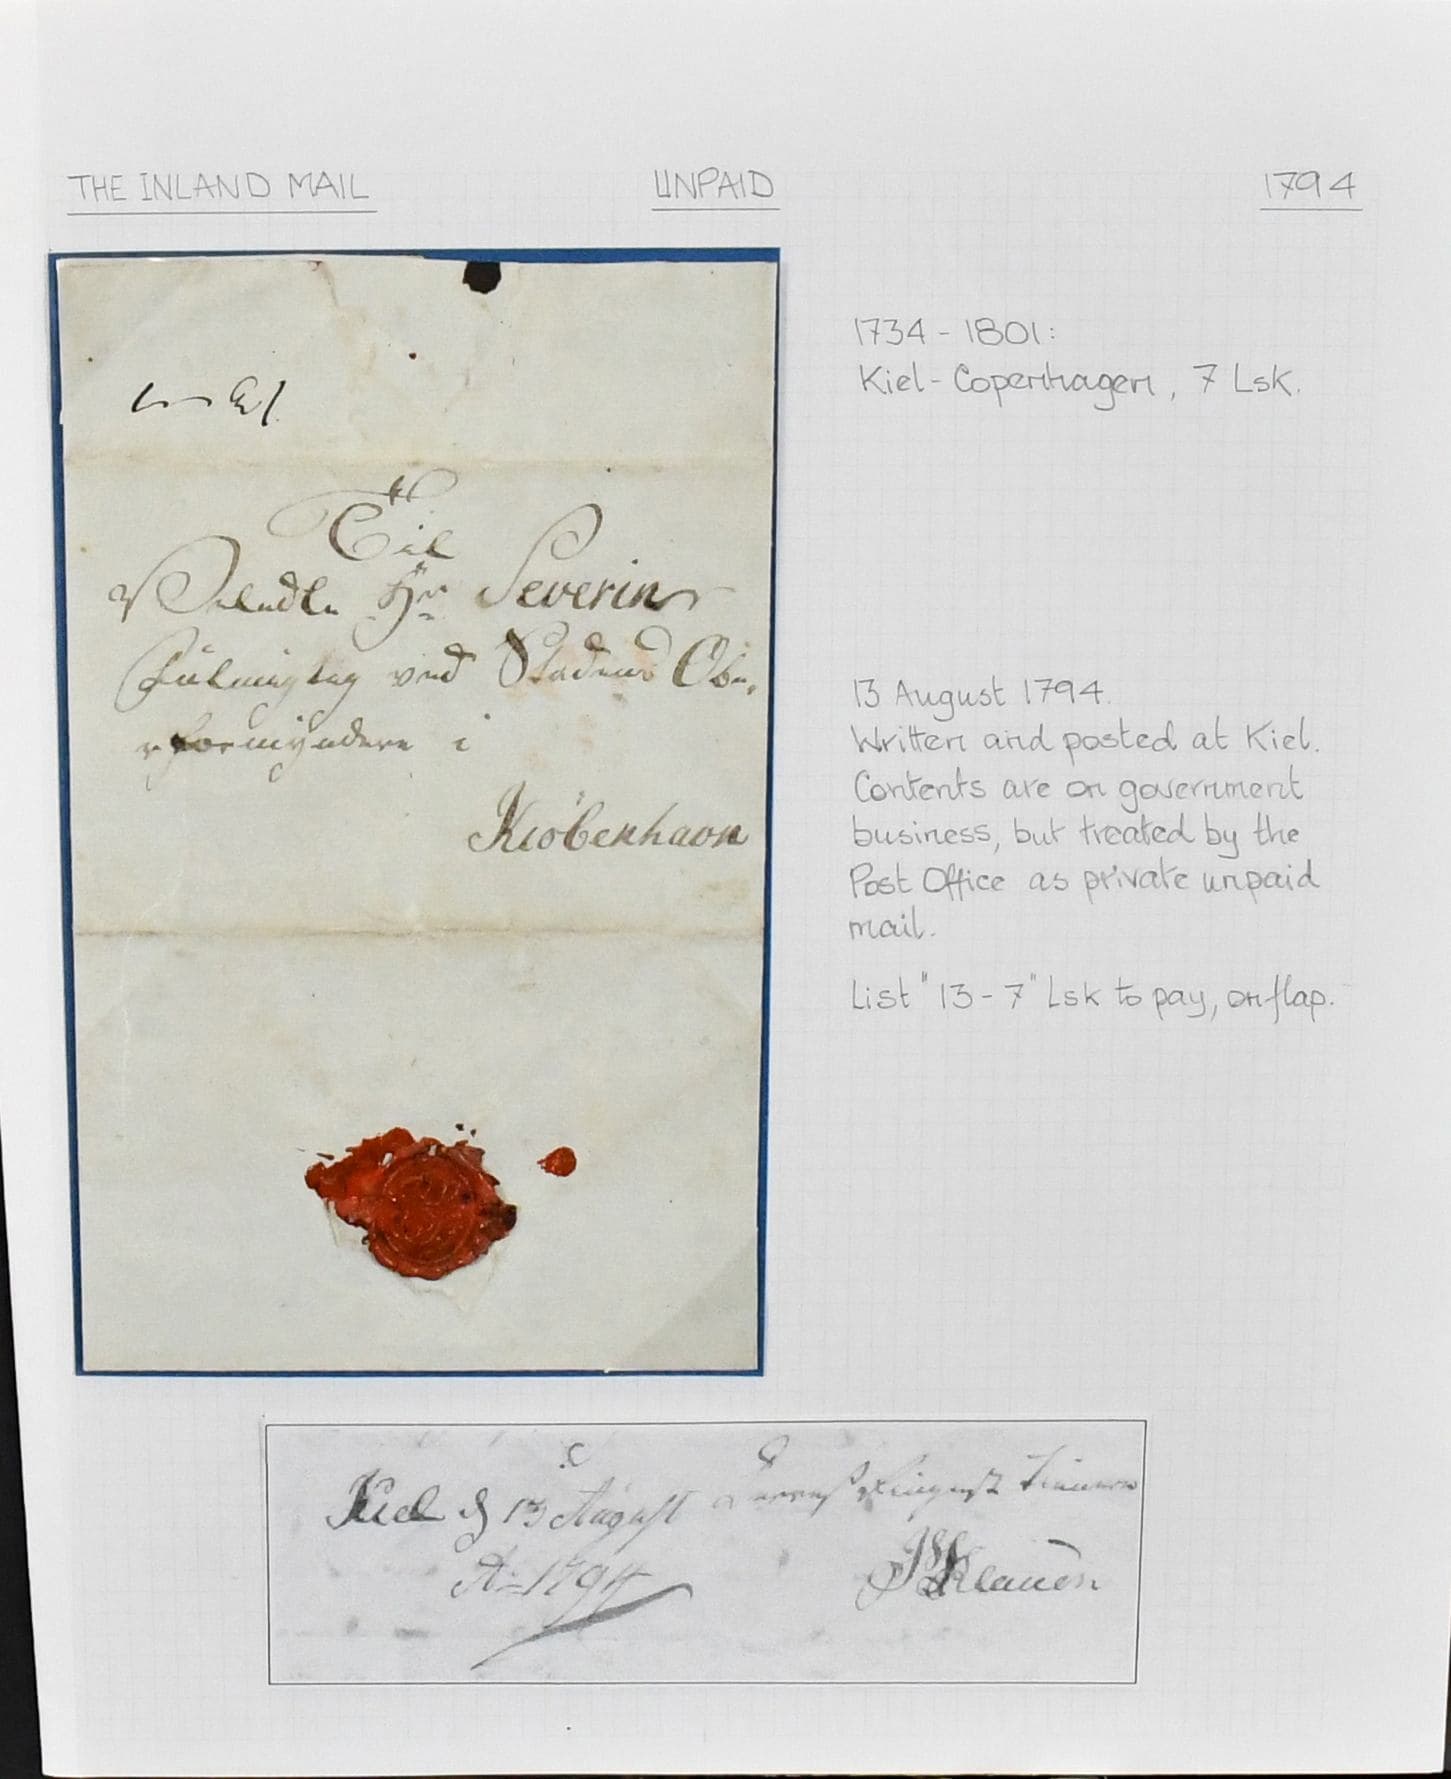 THE INLAND MAIL
UNPAID
1794
1734 - 1801:
Kiel - Copenhagen, 7 Lsk.
Til
Hr Severin
Fülmægtig ved Stadens Obe,
rformyndere i
Kiöbenhavn
13 August 1794.
Written and posted at Kiel.
Contents are on government
business, but treated by the
Post Office as private unpaid
mail.
List "13 - 7" Lsk to pay, on flap.
Kiel d 13 August
Ao 1794
Klauen